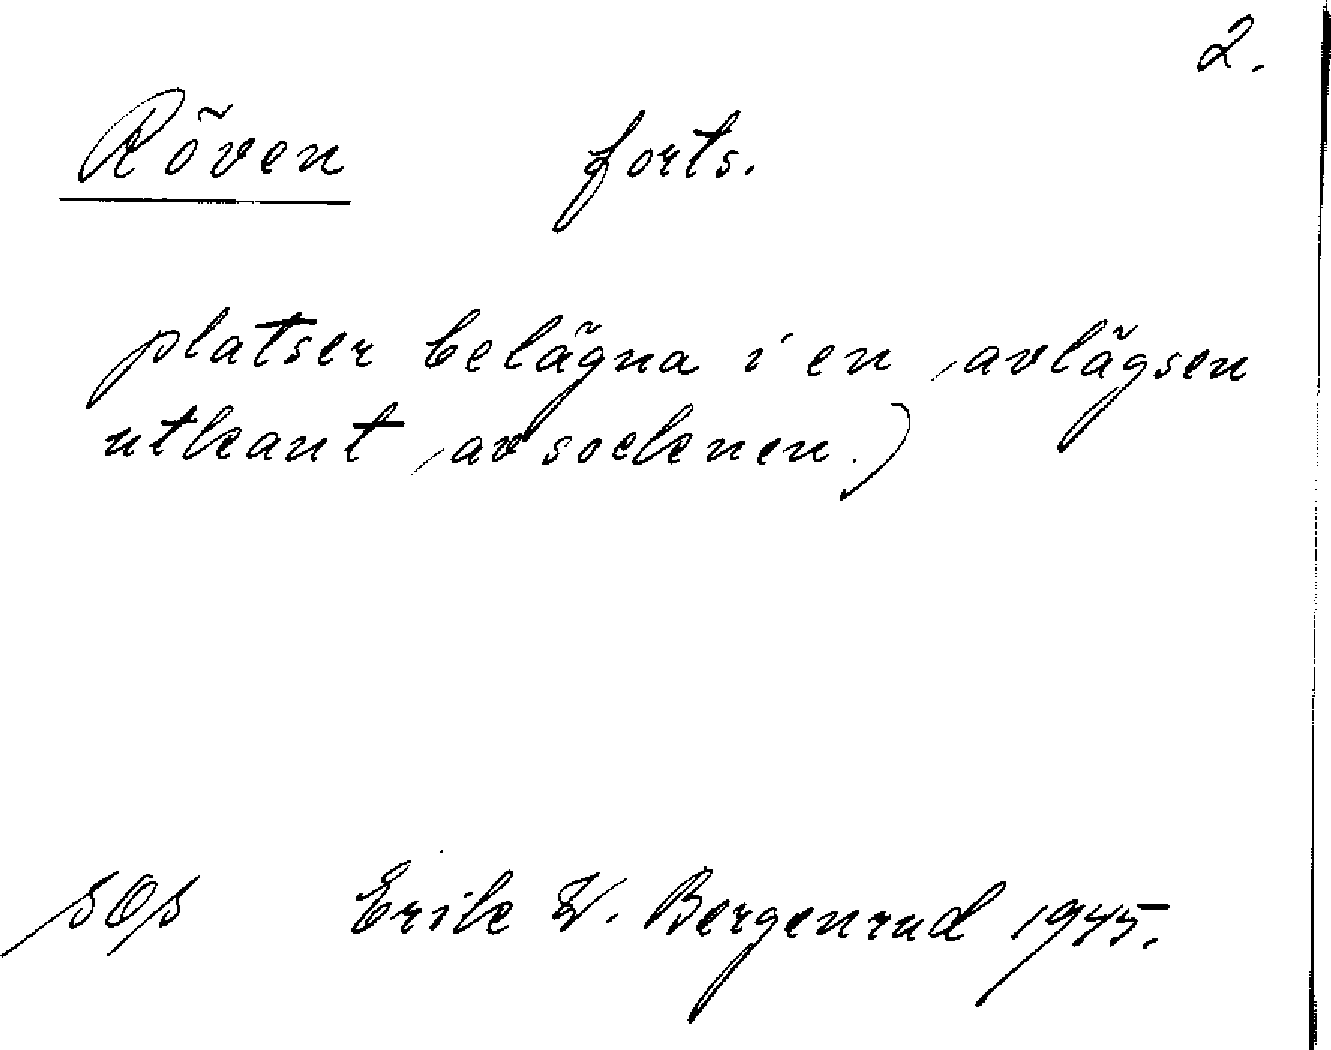 2.
Röven forts.
platser belägna i en avlägsen
utkant av socknen.)
Erik W. Bergenrud 1945.